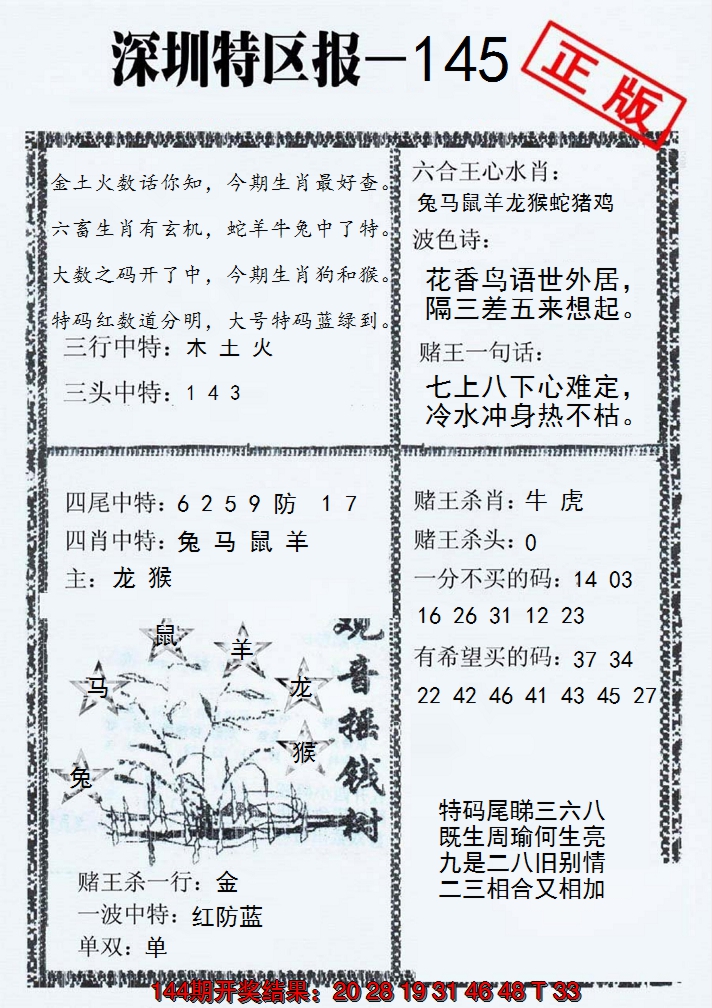 深圳特区报—145
正版
金土火数话你知，今期生肖最好查。
六畜生肖有玄机，蛇羊牛兔中了特。
大数之码开了中，今期生肖狗和猴。
特码红数道分明，大号特码蓝绿到。
三行中特：木 土 火
三头中特：1 4 3
六合王心水肖：
兔马鼠羊龙猴蛇猪鸡
波色诗：
花香鸟语世外居，
隔三差五来想起。
赌王一句话：
七上八下心难定，
冷水冲身热不枯。
四尾中特：6 2 5 9 防 1 7
四肖中特：兔 马 鼠 羊
主：龙 猴
赌王杀肖：牛 虎
赌王杀头：0
一分不买的码：14 03
16 26 31 12 23
有希望买的码：37 34
22 42 46 41 43 45 27
鼠
羊
马
龙
猴
兔
观音摇钱树
特码尾睇三六八
既生周瑜何生亮
九是二八旧别情
二三相合又相加
赌王杀一行：金
一波中特：红防蓝
单双：单
144期开奖结果：20 28 19 31 46 48 T 33